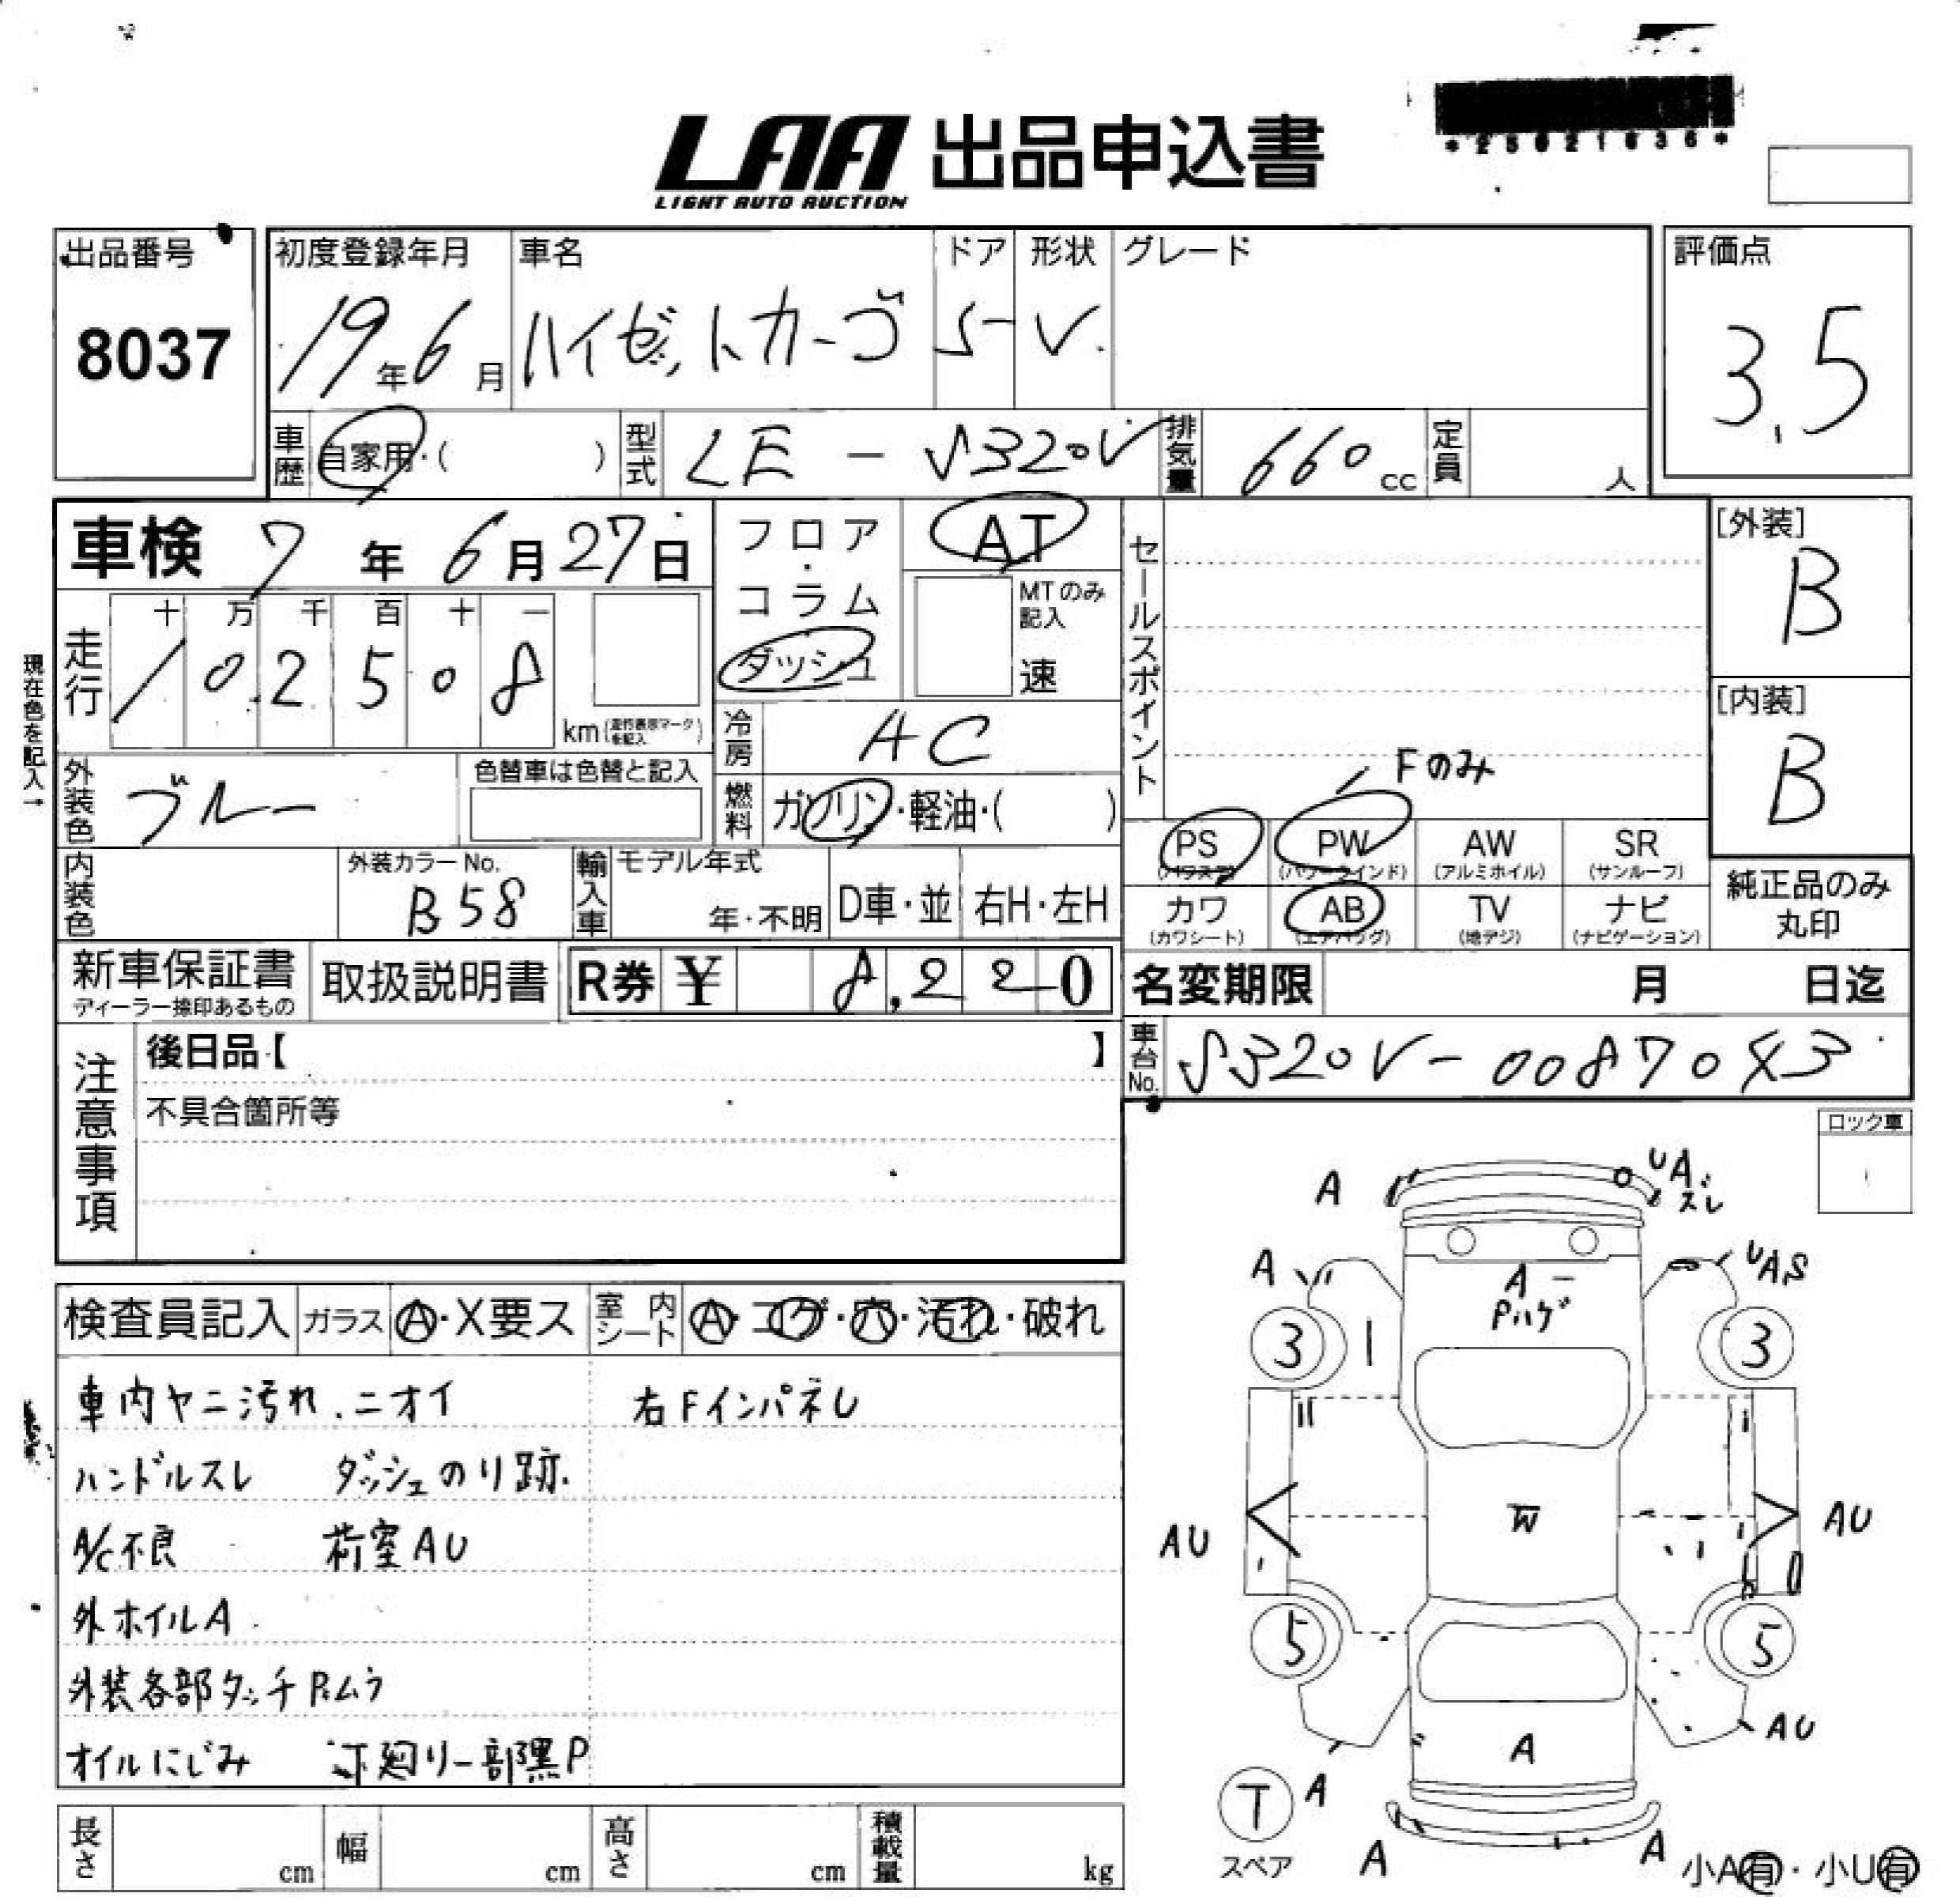 LAA 出品申込書
LIGHT AUTO AUCTION
出品番号
8037
初度登録年月
19年6月
車名
ハイゼットカーゴ
ドア
5
形状
V
グレード
評価点
3.5
車歴 自家用・( )
型式 LE - S320V
排気量 660 cc
定員 人
車検 7年 6月27日
フロア・コラム
ダッシュ
AT
MTのみ記入
速
セールスポイント
[外装]
B
[内装]
B
現在色を記入→
走行
十 万 千 百 十 一
1 0 2 5 0 8
km(走行表示マークを記入)
冷房 AC
外装色 ブルー
色替車は色替と記入
燃料 ガソリン・軽油・( )
Fのみ
PS PW AW SR
(パワステ) (パワーウインド) (アルミホイル) (サンルーフ)
カワ AB TV ナビ
(カワシート) (エアバッグ) (地デジ) (ナビゲーション)
純正品のみ
丸印
内装色
外装カラーNo.
B58
輸入車
モデル年式
年・不明
D車・並
右H・左H
新車保証書
ディーラー捺印あるもの
取扱説明書
R券 ¥ 8,220
名変期限 月 日迄
車台No. S320V-0087043
注意事項
後日品【 】
不具合箇所等
ロック車
検査員記入 ガラス A・X要ス 室内シート A・コゲ・穴・汚れ・破れ
車内ヤニ汚れ、ニオイ 右FインパネU
ハンドルスレ ダッシュのり跡.
A/C不良 荷室AU
外ホイルA
外装各部タッチP.ムラ
オイルにじみ 下廻り一部黒P
A
UA.
スレ
A
UAS
A
Pハゲ
3
3
W
AU
AU
5
5
AU
A
A
T
スペア
A
A
小A有・小U有
長さ cm 幅 cm 高さ cm 積載量 kg